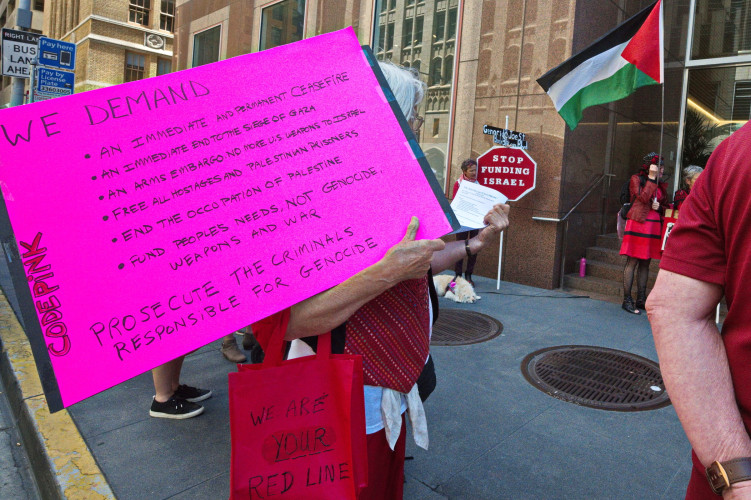 RIGHT LANE
BUS
LANE
AHEAD
Pay here
Pay by
License
Plate
WE DEMAND
• AN IMMEDIATE AND PERMANENT CEASEFIRE
• AN IMMEDIATE END TO THE SIEGE OF GAZA
• AN ARMS EMBARGO NO MORE U.S. WEAPONS TO ISRAEL
• FREE ALL HOSTAGES AND PALESTINIAN PRISONERS
• END THE OCCUPATION OF PALESTINE
• FUND PEOPLES NEEDS, NOT GENOCIDE,
WEAPONS AND WAR
PROSECUTE THE CRIMINALS
RESPONSIBLE FOR GENOCIDE
CODEPINK
WE ARE
YOUR
RED LINE
STOP
FUNDING
ISRAEL